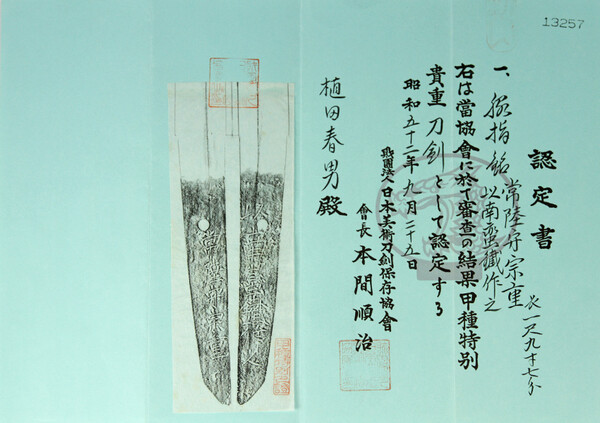 13257
認定書
一、脇指 銘 常陸守宗重
以南蛮鐵作之
長一尺九寸七分
右は當協會に於て審査の結果甲種特別
貴重刀剣として認定する
昭和五十二年九月二十五日
財團法人日本美術刀剣保存協會
會長 本間順治
植田春男殿